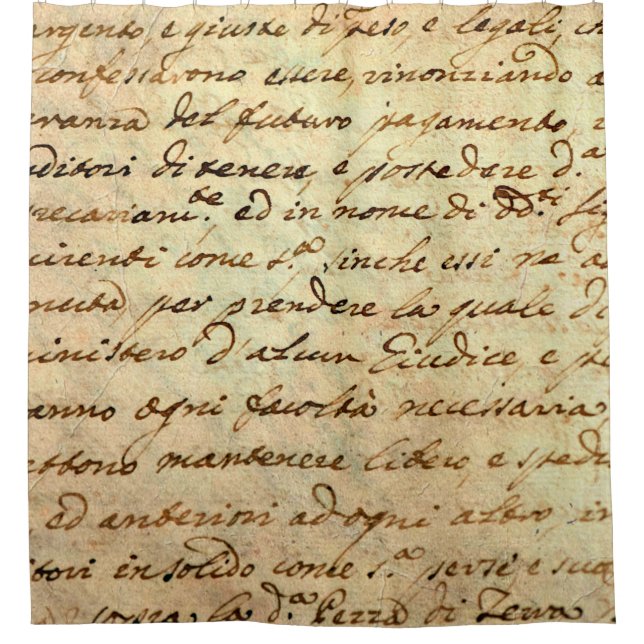 argento e giuste di peso, e legali, c
confessarono essere, rinonziando a
eranza del futuro pagamento,
nditori di tenere, e possedere d.ª
precariam.te ed in nome di dd.ti Sig
uirenti come s.ª sinche essi ne a
nuta per prendere la quale di
ministero d'alcun Giudice, e pe
anno ogni facoltà necessaria
ettono mantenere libero, e spedi
ed anteriori ad ogni altro, in
itori in solido come s.ª per se e suoi
sopra la d.ª Pezza di Terra